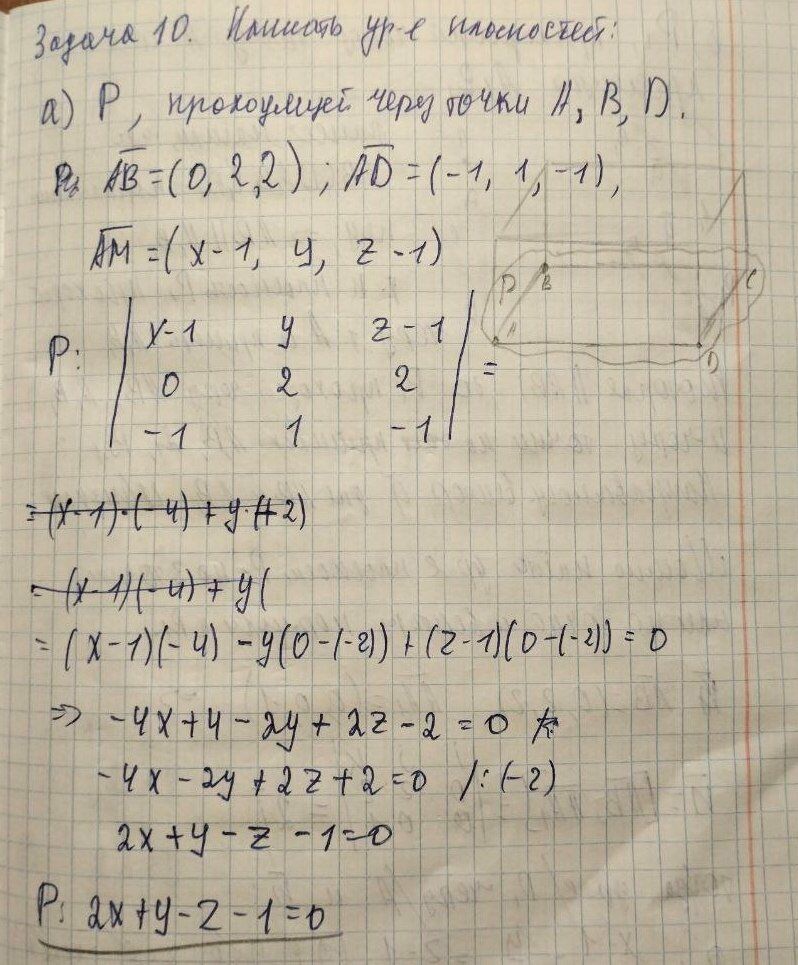 Задача 10. Написать ур-е плоскостей:
а) P, проходящей через точки A, B, D.
AB = (0, 2, 2) ; AD = (-1, 1, -1),
AM = (x-1, y, z-1)
P B C
A D
P: | x-1 y z-1 |
| 0 2 2 | =
| -1 1 -1 |
= (x-1)·(-4) + y·(+2)
= (x-1)(-4) + y(
= (x-1)(-4) - y(0-(-2)) + (z-1)(0-(-2)) = 0
=> -4x+4-2y+2z-2=0
-4x-2y+2z+2=0 /:(-2)
2x+y-z-1=0
P: 2x+y-z-1=0